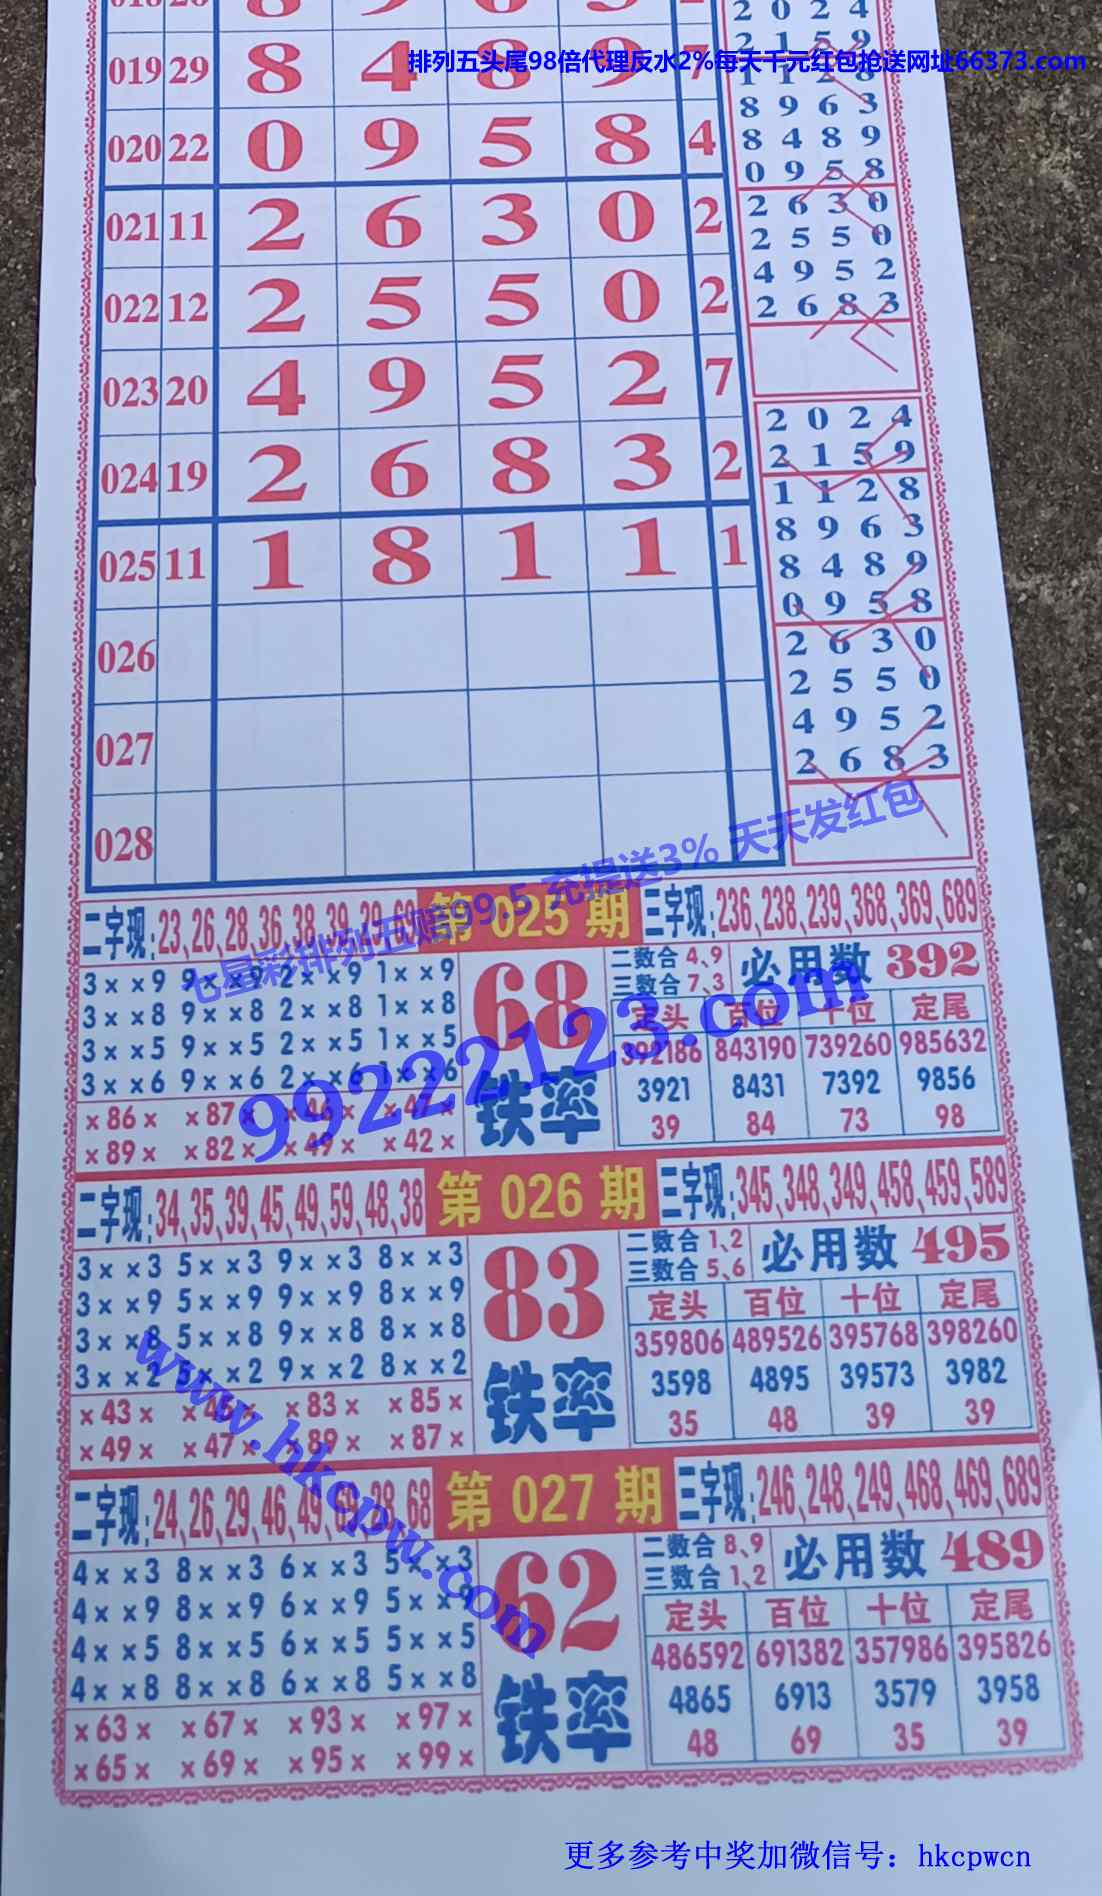 排列五头尾98倍代理反水2%每天千元红包抢送网址66373.com
019 29 8 4 8 9 7
020 22 0 9 5 8 4
021 11 2 6 3 0 2
022 12 2 5 5 0 2
023 20 4 9 5 2 7
024 19 2 6 8 3 2
025 11 1 8 1 1 1
026
027
028
2 0 2 4
2 1 5 9
1 1 2 8
8 9 6 3
8 4 8 9
0 9 5 8
2 6 3 0
2 5 5 0
4 9 5 2
2 6 8 3
2 0 2 4
2 1 5 9
1 1 2 8
8 9 6 3
8 4 8 9
0 9 5 8
2 6 3 0
2 5 5 0
4 9 5 2
2 6 8 3
七星彩排列五赔99.5 充提送3% 天天发红包
二字现:23,26,28,36,38,39,29,69 第 025 期 三字现:236,238,239,368,369,689
3××9 9××9 2××9 1××9
3××8 9××8 2××8 1××8
3××5 9××5 2××5 1××5
3××6 9××6 2××6 1××6
×86× ×87× ×46× ×47×
×89× ×82× ×49× ×42×
68
铁率
二数合 4、9
三数合 7、3
必用数 392
定头 百位 十位 定尾
392186 843190 739260 985632
3921 8431 7392 9856
39 84 73 98
99222123.com
二字现:34,35,39,45,49,59,48,38 第 026 期 三字现:345,348,349,458,459,589
3××3 5××3 9××3 8××3
3××9 5××9 9××9 8××9
3××8 5××8 9××8 8××8
3××2 5××2 9××2 8××2
×43× ×45× ×83× ×85×
×49× ×47× ×89× ×87×
83
铁率
二数合 1、2
三数合 5、6
必用数 495
定头 百位 十位 定尾
359806 489526 395768 398260
3598 4895 39573 3982
35 48 39 39
www.hkcpw.com
二字现:24,26,29,46,49,69,28,68 第 027 期 三字现:246,248,249,468,469,689
4××3 8××3 6××3 5××3
4××9 8××9 6××9 5××9
4××5 8××5 6××5 5××5
4××8 8××8 6××8 5××8
×63× ×67× ×93× ×97×
×65× ×69× ×95× ×99×
62
铁率
二数合 8、9
三数合 1、2
必用数 489
定头 百位 十位 定尾
486592 691382 357986 395826
4865 6913 3579 3958
48 69 35 39
更多参考中奖加微信号：hkcpwcn